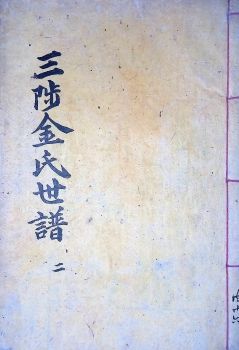 三陟金氏世譜
二